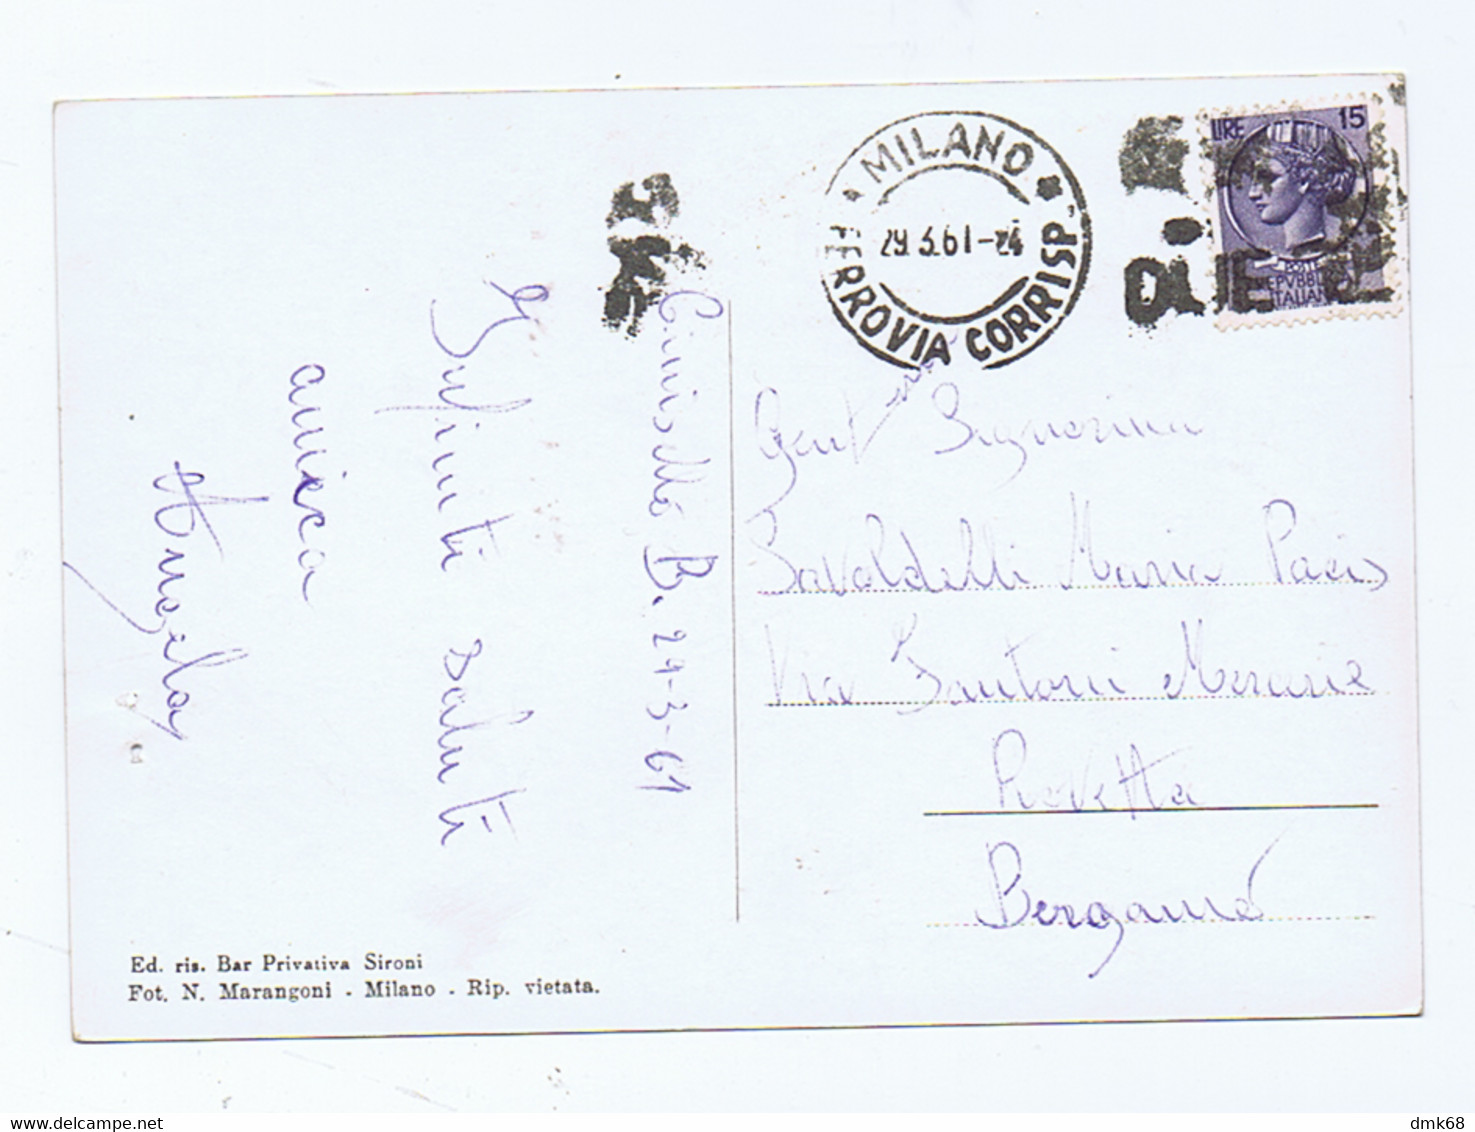 MILANO
FERROVIA CORRISP.
29.3.61-24
LIRE 15
POSTE
REPVBBLICA
ITALIANA
Cinisello B. 29-3-61
Infiniti saluti
amica
Angela
Gent.ma Signorina
Savoldelli Maria Pacis
Via Fantoni
Rovetta
Bergamo
Ed. ris. Bar Privativa Sironi
Fot. N. Marangoni - Milano - Rip. vietata.
dmk68